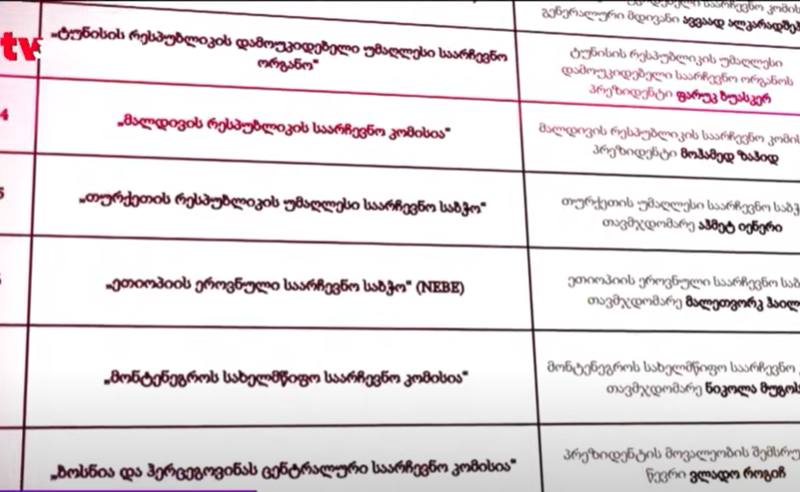 გენერალური მდივანი ავვაად ალკარადშეჰ
tv
„ტუნისის რესპუბლიკის დამოუკიდებელი უმაღლესი საარჩევნო
ორგანო“
ტუნისის რესპუბლიკის უმაღლესი
დამოუკიდებელი საარჩევნო ორგანოს
პრეზიდენტი ფარუკ ბუასკერ
4
„მალდივის რესპუბლიკის საარჩევნო კომისია“
მალდივის რესპუბლიკის საარჩევნო
პრეზიდენტი მოჰამედ ზაჰიდ
5
„თურქეთის რესპუბლიკის უმაღლესი საარჩევნო საბჭო“
თურქეთის უმაღლესი საარჩევნო
თავმჯდომარე აჰმეტ იენერი
„ეთიოპიის ეროვნული საარჩევნო საბჭო“ (NEBE)
ეთიოპიის ეროვნული საარჩევნო
თავმჯდომარე მალეთვორკ
„მონტენეგროს სახელმწიფო საარჩევნო კომისია“
მონტენეგროს სახელმწიფო საარჩევნო
თავმჯდომარე ნიკოლა
„ბოსნია და ჰერცეგოვინას ცენტრალური საარჩევნო კომისია“
პრეზიდენტის მოვალეობის
წევრი ვლადო როგიჩ